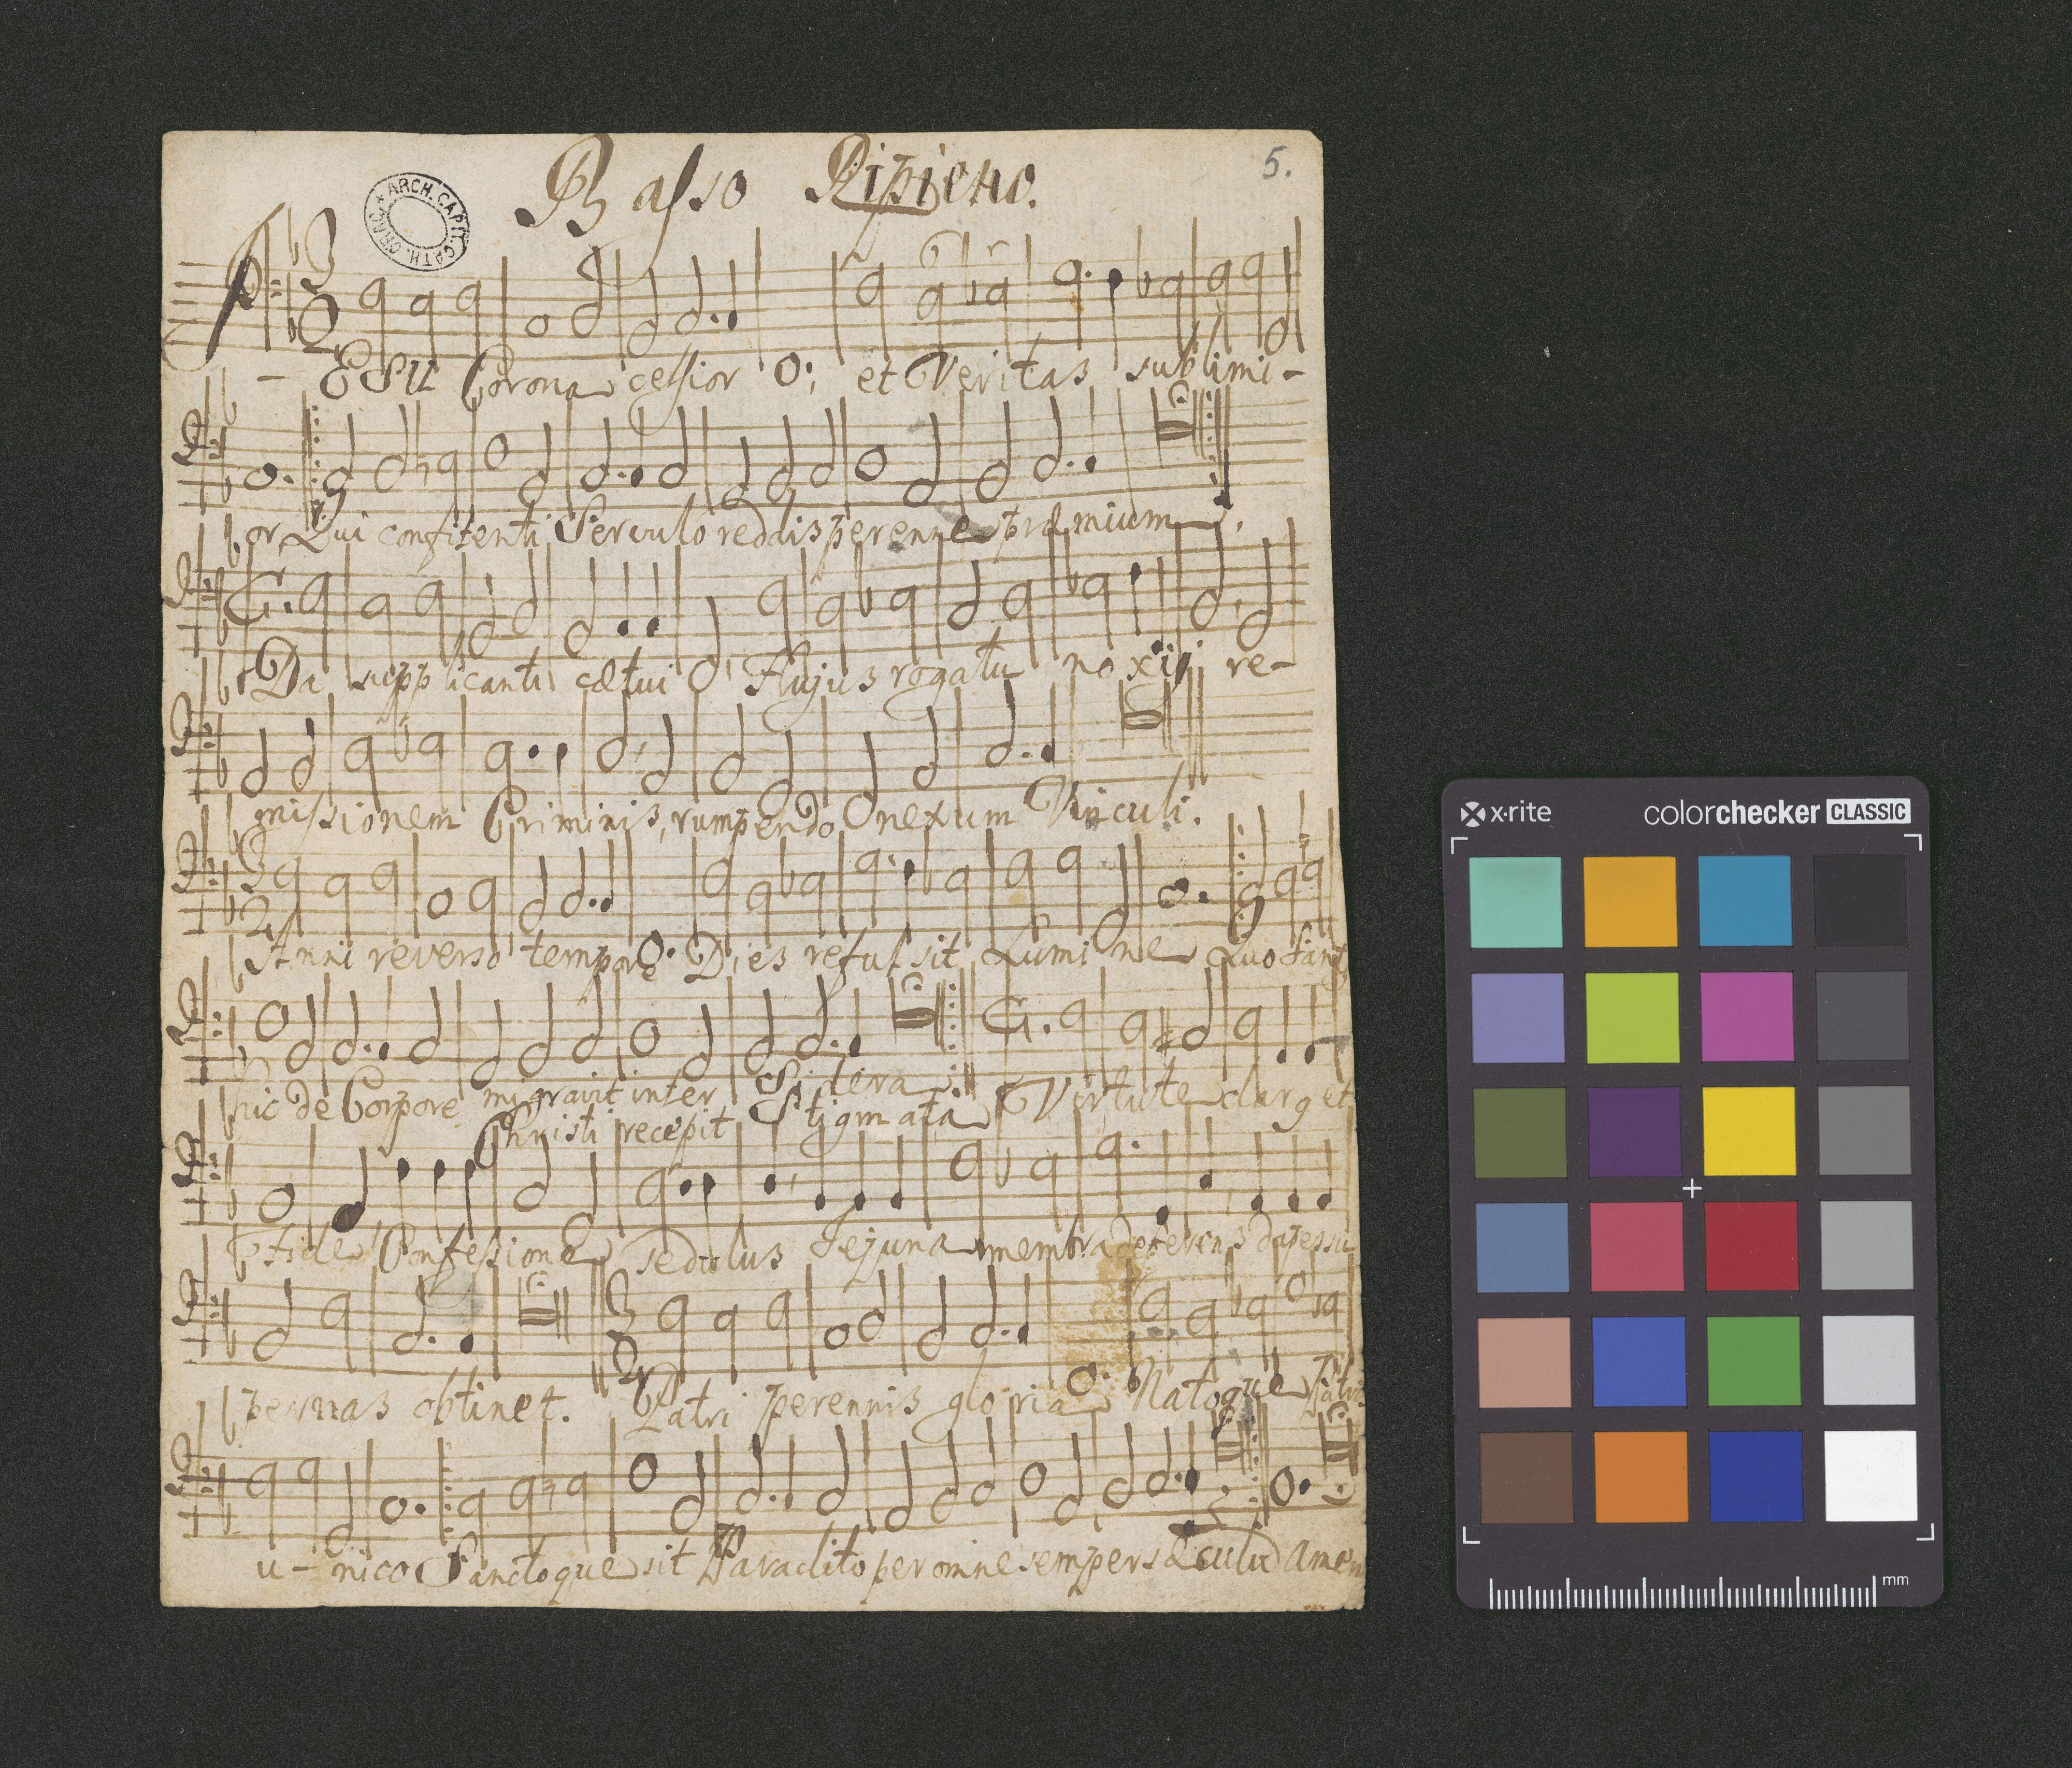 Basso Ripieno.
5.
ARCH. CAPIT. CATH. CRAC.
IESU Corona celsior et Veritas sublimi-
or, Qui confitenti Servulo reddis perenne præmium.
Da supplicanti cætui Hujus rogatu noxij re-
missionem Criminis, rumpendo nexum Vinculi.
Anni reverso tempore Dies refulsit Lumine Quo Sanct
hic de Corpore migravit inter Sidera Virtute clarg et
Christi recepit Stigmata
Fide Confessione sedulus Jejuna membra deferens dapes su
pernas obtinet. Patri perennis gloria Natoque Patri
u-nico Sanctoque sit Paraclito per omne semper sæculu Amen
x·rite
colorchecker CLASSIC
mm